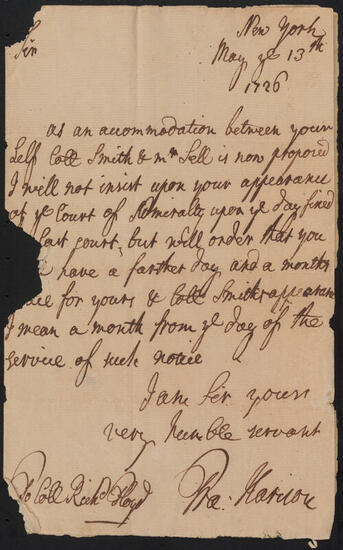 New York
Sir May ye 13th
1726
as an accommodation between your
Self Coll Smith & mr Sell is now proposed
I will not insist upon your appearance
at ye Court of Admiralty upon ye day fixed
last court, but will order that you
have a farther day and a months
for yours & Coll Smiths appearance
I mean a month from ye day of the
Service of such notice
I am Sir yours
very humble servant
To Coll Richd Floyd Fra: Harison